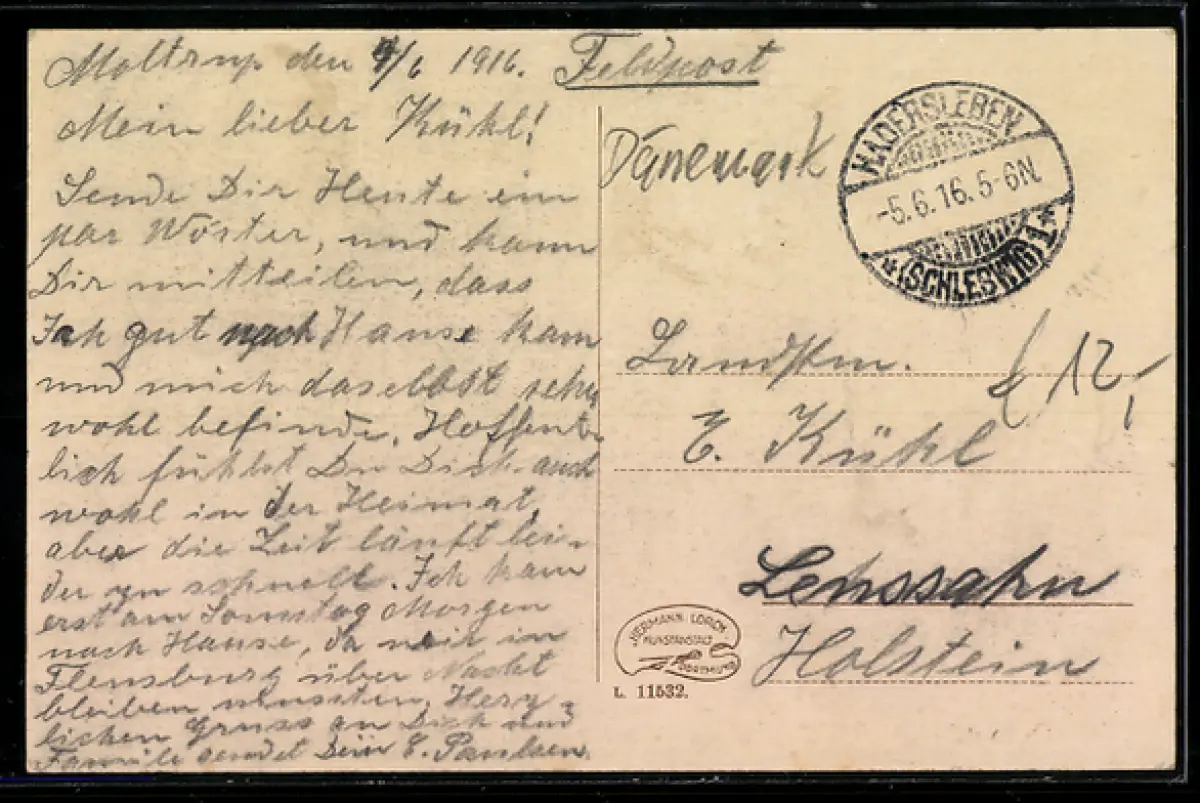 Moltrup den 4/6 1916.
Feldpost
Mein lieber Kühl!
Sende Dir Heute ein
par Wörter, und kann
Dir mitteilen, dass
Ich gut nach Hause kam
und mich daselbst sehr
wohl befinde, Hoffent-
lich fühlst Du Dich auch
wohl in der Heimat,
aber die Zeit läuft lei-
der zu schnell. Ich kam
erst am Sonntag Morgen
nach Hause, da wir in
Flensburg über Nacht
bleiben mussten, Herz-
lichen Gruss an Dich und
Familie sendet Dein E. Paulsen.
Dänemark
HADERSLEBEN
-5.6.16.5-6N.
*(SCHLESWIG)1*
Landstm.
12,
E. Kühl
Lensahn
Holstein
HERMANN LORCH
KUNSTANSTALT
DORTMUND
L. 11532.